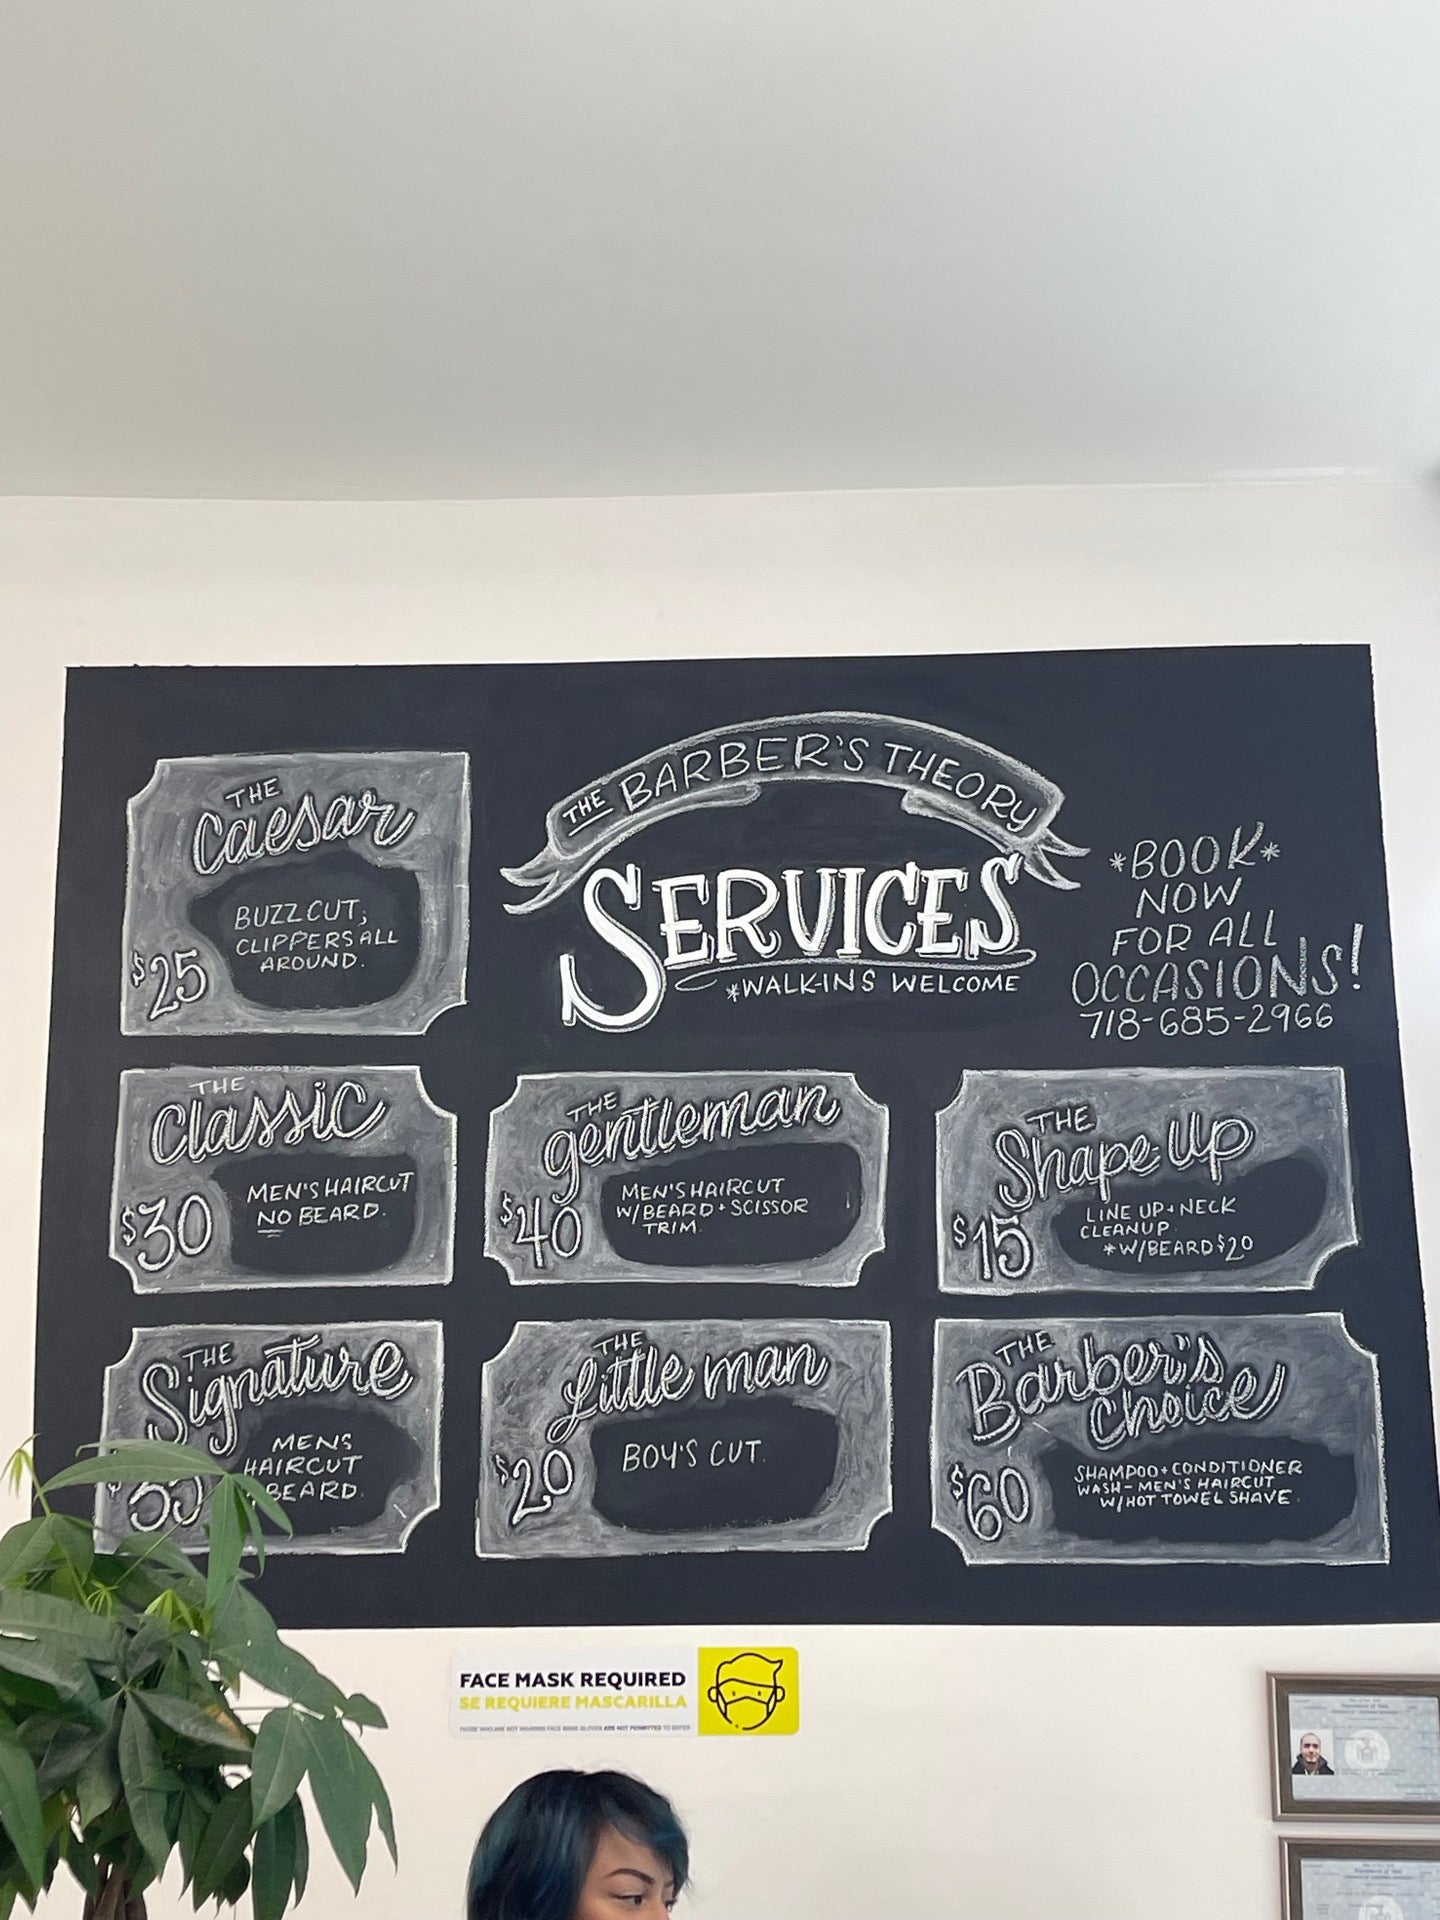 THE
Caesar
$25
BUZZ CUT;
CLIPPERS ALL
AROUND.
THE BARBER'S THEORY
SERVICES
*WALK-INS WELCOME
*BOOK*
NOW
FOR ALL
OCCASIONS!
718-685-2966
THE
Classic
$30
MEN'S HAIRCUT
NO BEARD.
THE
gentleman
$40
MEN'S HAIRCUT
W/BEARD + SCISSOR
TRIM.
THE
Shape-Up
$15
LINE UP + NECK
CLEANUP.
*W/BEARD $20
THE
Signature
MENS
HAIRCUT
BEARD.
THE
Little man
$20
BOY'S CUT.
THE
Barber's
Choice
$60
SHAMPOO + CONDITIONER
WASH - MEN'S HAIRCUT
W/HOT TOWEL SHAVE.
FACE MASK REQUIRED
SE REQUIERE MASCARILLA
THOSE WHO ARE NOT WEARING FACE MASK GLOVES ARE NOT PERMITTED TO ENTER